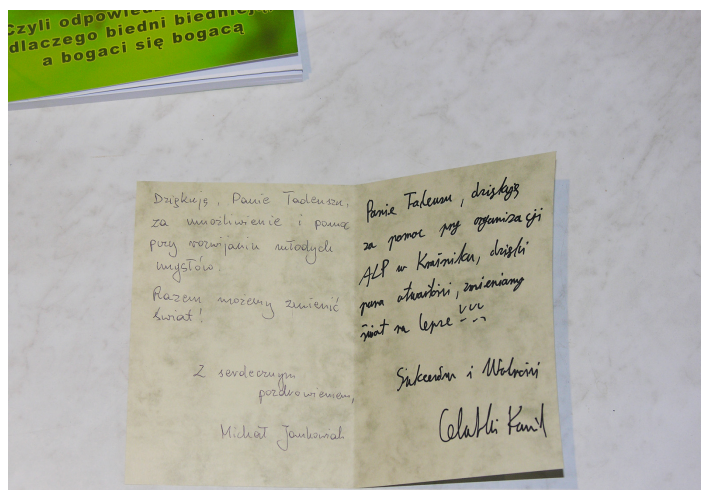 Czyli odpowiedź
dlaczego biedni biednieją,
a bogaci się bogacą
Dziękuję, Panie Tadeuszu,
za umożliwienie i pomoc
przy rozwijaniu młodych
umysłów.
Razem możemy zmienić
świat!
Z serdecznym
pozdrowieniem,
Michał Jankowiak
Panie Tadeuszu, dziękuję
za pomoc przy organizacji
ALP w Kraśniku, dzięki
pana otwartości, zmieniamy
świat na lepsze !!!
Sukcesów i Wolności
Kamil